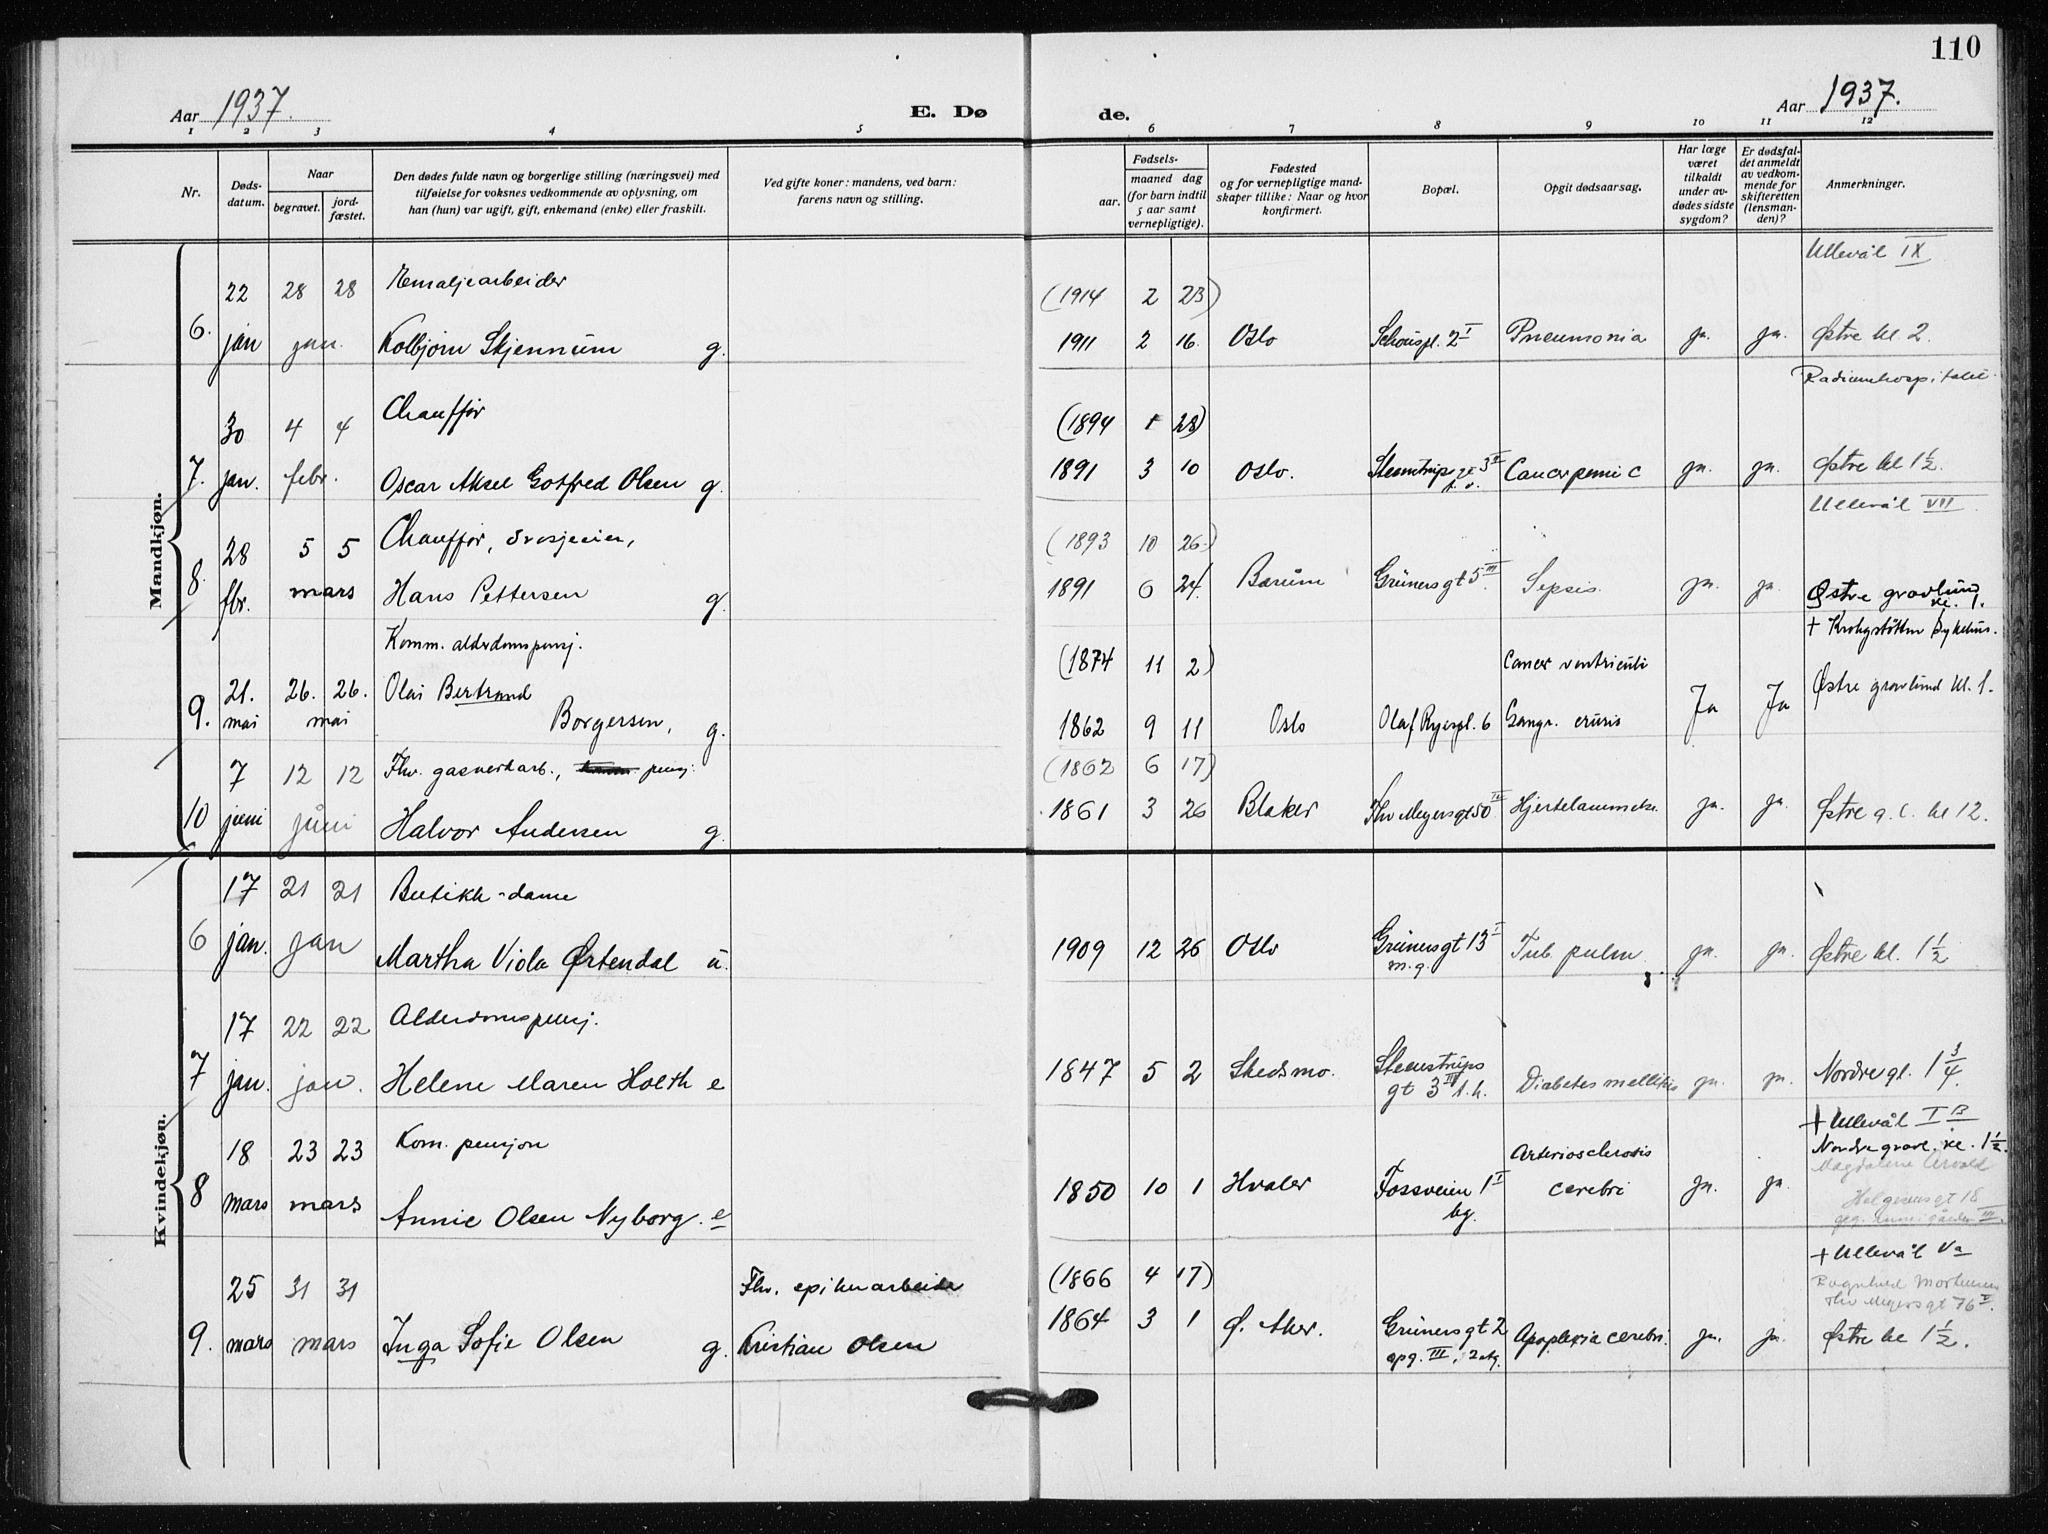 110
Aar 1937.
E. Dø
de.
Aar 1937.
1 2 3 4 5 6 7 8 9 10 11 12
Nr.
Døds-
datum.
Naar
begravet.
jord-
fæstet.
Den dødes fulde navn og borgerlige stilling (næringsvei) med
tilføielse for voksnes vedkommende av oplysning, om
han (hun) var ugift, gift, enkemand (enke) eller fraskilt.
Ved gifte koner: mandens, ved barn:
farens navn og stilling.
Fødsels-
aar.
maaned dag
(for barn indtil
5 aar samt
vernepligtige).
Fødested
og for vernepligtige mand-
skaper tillike: Naar og hvor
konfirmert.
Bopæl.
Opgit dødsaarsag.
Har læge
været
tilkaldt
under av-
dødes sidste
sygdom?
Er dødsfal-
det anmeldt
av vedkom-
mende for
skifteretten
(lensman-
den)?
Anmerkninger.
Mandkjøn.
Ullevål IX
22 28 28 Emaljearbeider (1914 2 23)
6. jan jan. Kolbjørn Skjennum g. 1911 2 16. Oslo Schouspl. 2 I Pneumonia ja. ja. Østre kl. 2.
Radiumhospitalet
30 4 4 Chauffør (1894 1 28)
7. jan. febr. Oscar Aksel Gotfred Olsen g. 1891 3 10 Oslo. Steenstrups gt 3 Cancer penis ja. ja. Østre kl 1½.
Ullevål VII
28 5 5 Chauffør, drosjeeier, (1893 10 26)
8. fbr. mars Hans Pettersen g. 1891 6 24. Bærum Grüners gt 5 III Sepsis. ja. ja. Østre gravlund
kl. 1.
Komm. alderdomspensj. + Krohgstøtten Sykehus.
(1874 11 2) Cancer ventriculi
9. 21. mai 26. 26. mai Olai Bertrand
Borgersen, g. 1862 9 11 Oslo Olaf Ryespl. 6 Gangr. cruris Ja Ja Østre gravlund kl. 1.
7 12 12 Fhv. gasverkarb., pensj. (1862 6 17)
10 juni juni Halvor Andersen g. 1861 3 26 Blaker Thv Meyersgt 50 IV Hjertelammelse. ja. ja. Østre g. C. kl 12.
Kvindekjøn.
17 21 21 Butikk-dame
6 jan. jan Martha Viola Ørtendal u. 1909 12 26 Oslo Grüners gt 13 I
m.g. Tub. pulm. ja. ja. Østre kl. 1½
17 22 22 Alderdomspensj.
7 jan. jan. Helene Maren Holth e 1847 5 2 Skedsmo. Steenstrups
gt 3 III t.h. Diabetes mellitus ja. ja. Nordre gl. 1¾.
+ Ullevål I B
18 23 23 Kom. pensjon Arteriosclerosis Nordre gravl. kl. 1½.
8 mars mars Annie Olsen Nyborg. e 1850 10 1 Hvaler Fossveien 1 I
bg. cerebri ja. ja. Magdalene Arvold
Helgesens gt 18
+ Ullevål Va
25 31 31 Fhv. spikerarbeider (1866 4 17) Ragnhild Mortensen
Thv Meyers gt 76 V.
9. mars mars Inga Sofie Olsen g. Kristian Olsen 1864 3 1 Ø. Aker. Grüners gt 2
opg. III, 2 etg. Apoplexia cerebri. ja. ja. Østre kl 1½.